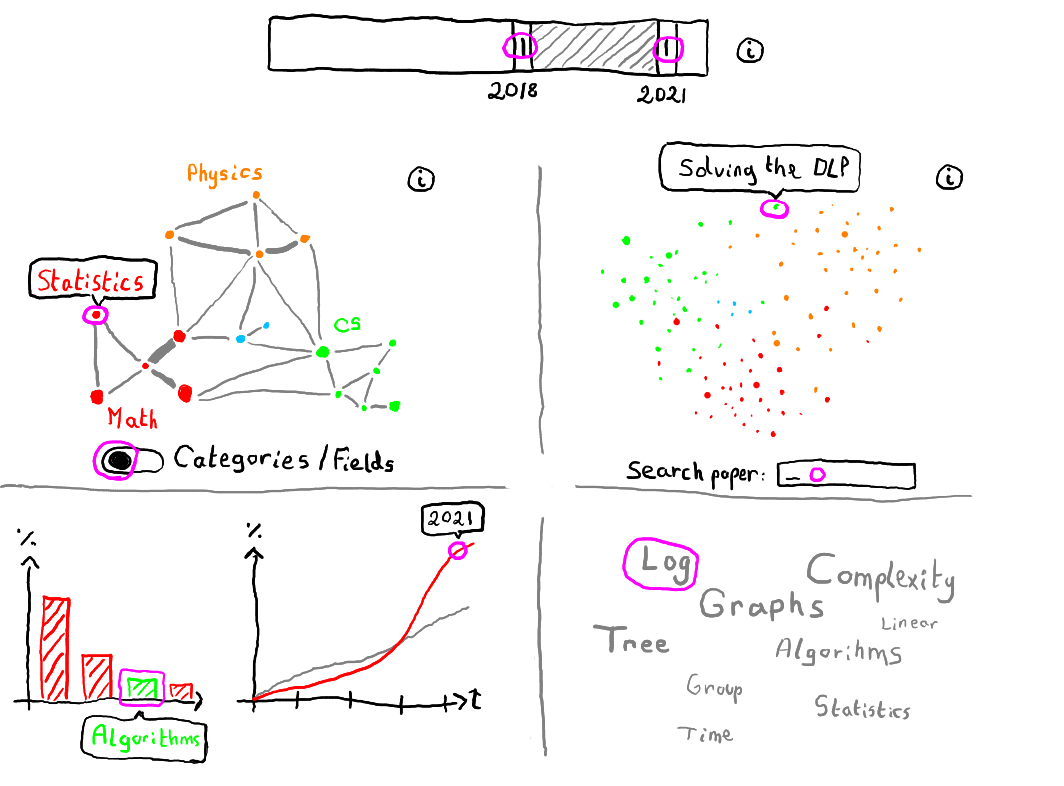 2018
2021
i
Physics
i
Statistics
CS
Math
Categories/Fields
Solving the DLP
i
Search paper: _
%
Algorithms
%
2021
t
Log
Complexity
Graphs
Linear
Tree
Algorihms
Group
Statistics
Time